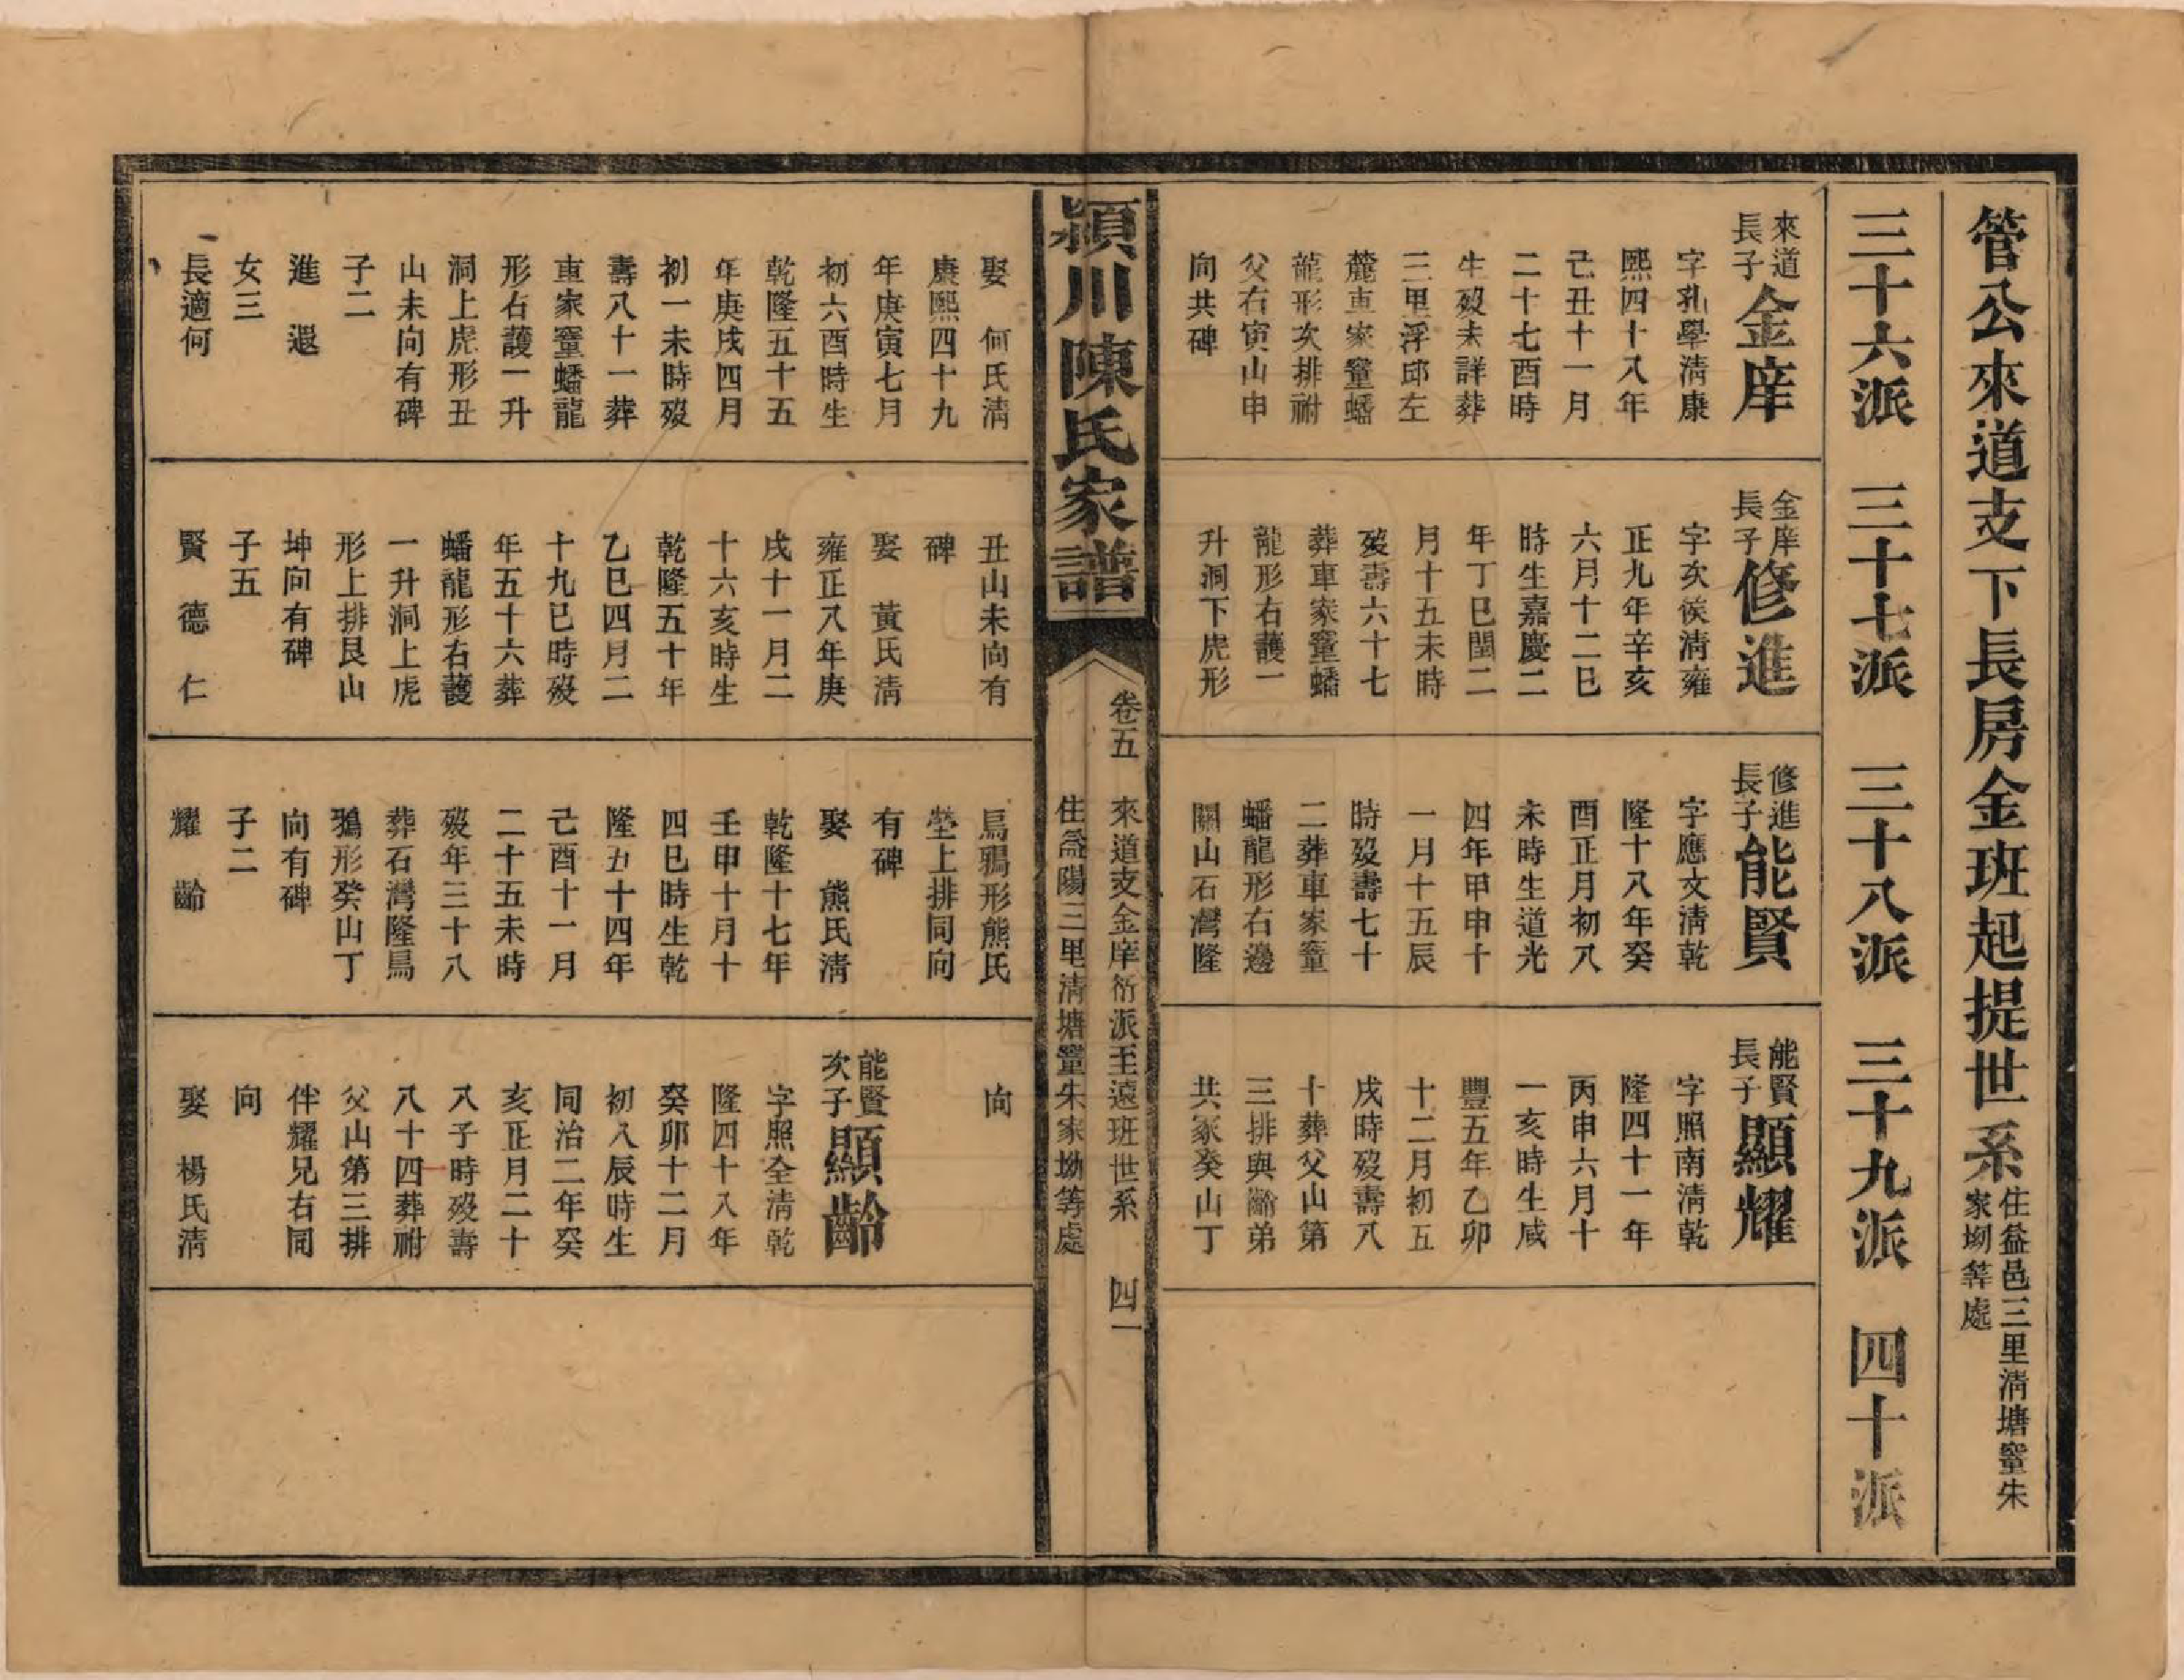 管公來道支下長房金班起提世系
住益邑三里清塘窰朱
家坳等處
三十六派　三十七派　三十八派　三十九派　四十派
來道
長子
金庠
字乳學清康
熙四十八年
己丑十一月
二十七酉時
生歿未詳葬
三里浮邱左
麓車家窰蟠
龍形次排祔
父右寅山申
向共碑
金庠
長子
修進
字次侯清雍
正九年辛亥
六月十二巳
時生嘉慶二
年丁巳閏二
月十五未時
歿壽六十七
葬車家窰蟠
龍形右護一
升洞下虎形
修進
長子
能賢
字應文清乾
隆十八年癸
酉正月初八
未時生道光
四年甲申十
一月十五辰
時歿壽七十
二葬車家窰
蟠龍形右邊
關山石灣隆
能賢
長子
顯耀
字照南清乾
隆四十一年
丙申六月十
一亥時生咸
豐五年乙卯
十二月初五
戌時歿壽八
十葬父山第
三排與齡弟
共冢癸山丁
潁川陳氏家譜
卷五　來道支金庠衍派至遠班世系　四一
住益陽三里清塘窰朱家坳等處
娶　何氏清
康熙四十九
年庚寅七月
初六酉時生
乾隆五十五
年庚戌四月
初一未時歿
壽八十一葬
車家窰蟠龍
形右護一升
洞上虎形丑
山未向有碑
子二
進　退
女三
長適何
丑山未向有
碑
娶　黃氏清
雍正八年庚
戌十一月二
十六亥時生
乾隆五十年
乙巳四月二
十九巳時歿
年五十六葬
蟠龍形右護
一升洞上虎
形上排艮山
坤向有碑
子五
賢　德　仁
烏鴉形熊氏
塋上排同向
有碑
娶　熊氏清
乾隆十七年
壬申十月十
四巳時生乾
隆五十四年
己酉十一月
二十五未時
歿年三十八
葬石灣隆烏
鴉形癸山丁
向有碑
子二
耀　齡
向
能賢
次子
顯齡
字照全清乾
隆四十八年
癸卯十二月
初八辰時生
同治二年癸
亥正月二十
八子時歿壽
八十四葬祔
父山第三排
伴耀兄右同
向
娶　楊氏清